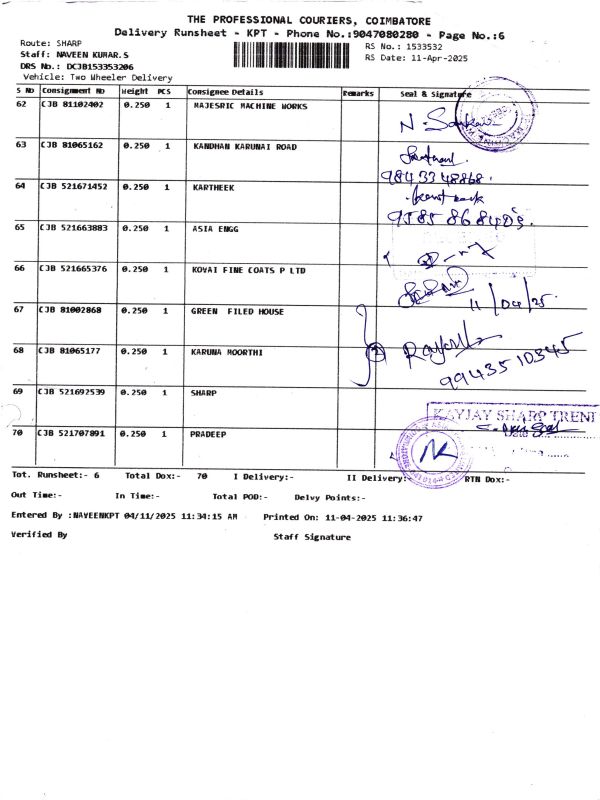 THE PROFESSIONAL COURIERS, COIMBATORE
Delivery Runsheet - KPT - Phone No.:9047080280 - Page No.:6
Route: SHARP
RS No.: 1533532
Staff: NAVEEN KUMAR.S
RS Date: 11-Apr-2025
DRS No.: DCJB153353206
Vehicle: Two Wheeler Delivery
S No Consignment No Weight PCS Consignee Details Remarks Seal & Signature
62 CJB 81102402 0.250 1 MAJESRIC MACHINE WORKS
63 CJB 81065162 0.250 1 KANDHAN KARUNAI ROAD
9843348868
64 CJB 521671452 0.250 1 KARTHEEK
65 CJB 521663883 0.250 1 ASIA ENGG
66 CJB 521665376 0.250 1 KOVAI FINE COATS P LTD
11/04/25
67 CJB 81002868 0.250 1 GREEN FILED HOUSE
68 CJB 81065177 0.250 1 KARUNA MOORTHI
2
9943510345
69 CJB 521692539 0.250 1 SHARP
KAYJAY SHARP TREND
Date
70 CJB 521707891 0.250 1 PRADEEP
Tot. Runsheet:- 6 Total Dox:- 70 I Delivery:- II Delivery:- RTN Dox:-
Out Time:- In Time:- Total POD:- Delvy Points:-
Entered By :NAVEENKPT 04/11/2025 11:34:15 AM Printed On: 11-04-2025 11:36:47
Verified By Staff Signature